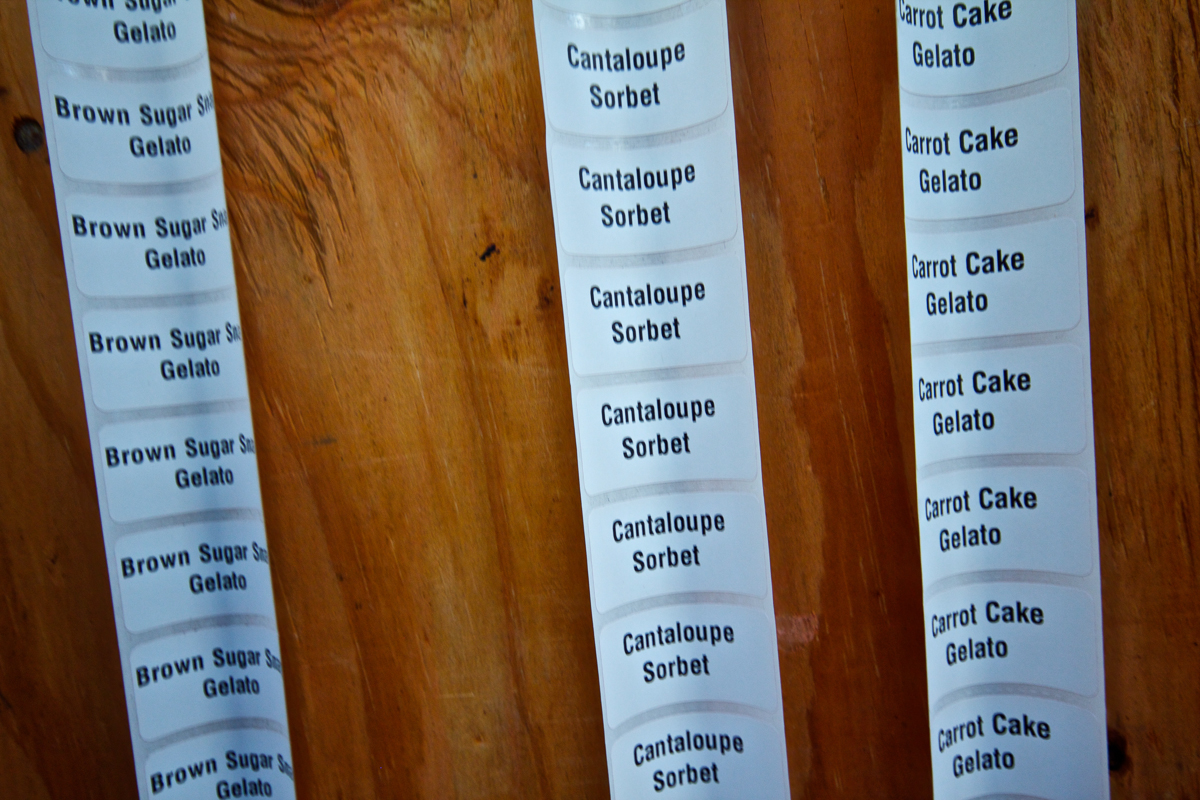 Brown Sugar
Gelato
Brown Sugar
Gelato
Brown Sugar
Gelato
Brown Sugar
Gelato
Brown Sugar
Gelato
Brown Sugar
Gelato
Brown Sugar
Gelato
Brown Sugar
Gelato
Cantaloupe
Sorbet
Cantaloupe
Sorbet
Cantaloupe
Sorbet
Cantaloupe
Sorbet
Cantaloupe
Sorbet
Cantaloupe
Sorbet
Cantaloupe
Sorbet
Carrot Cake
Gelato
Carrot Cake
Gelato
Carrot Cake
Gelato
Carrot Cake
Gelato
Carrot Cake
Gelato
Carrot Cake
Gelato
Carrot Cake
Gelato